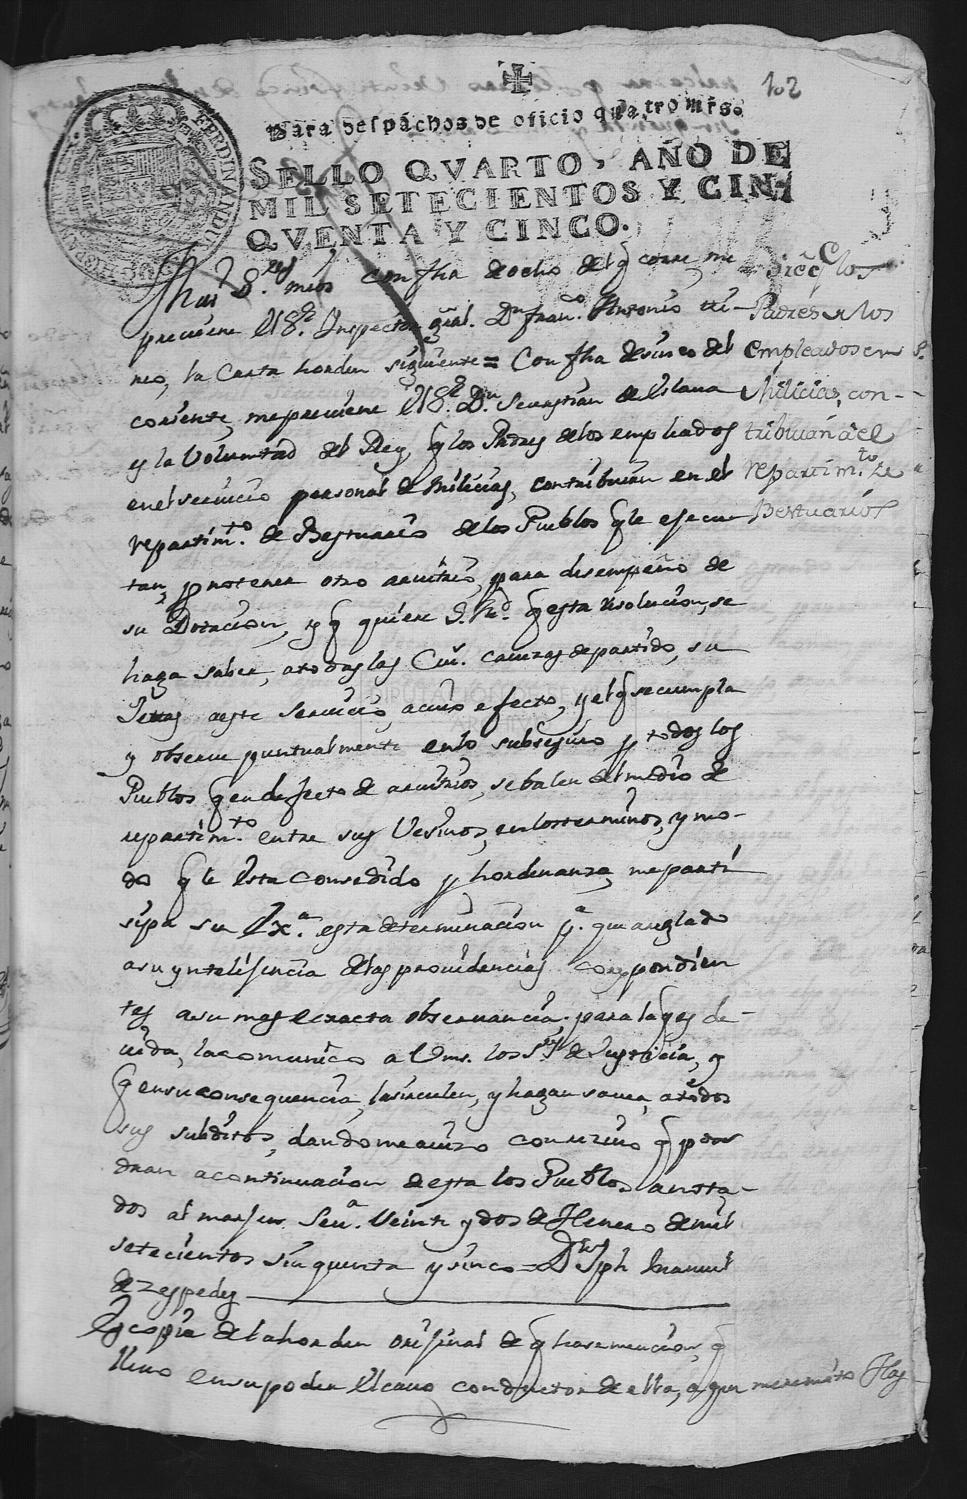 102
Para despachos de oficio quatro mrs.
SELLO QVARTO, AÑO DE
MIL SETECIENTOS Y CIN-
QVENTA Y CINCO.
Sres mios con fha de ocho del q corre, me
previene el Sr. Inspector gral. Dn Franco. Antonio
neo, la Carta horden siguiente = Con fha de sinco del
coriente, me previene el Sr. Dn. Sevastian de Eslava
es la Voluntad del Rey, q los Padres de los empleados
en el servicio personal de Milicias, contribuian en el
repartimto. de Bestuarios de los Pueblos q le ejecu
tan, p no tener otro arvitrio, para desempeño de
su Dotacion, y q quiere S. Md. q esta resolucion, se
haga saber, a todas las Ciu. cavezas de partido, su
Jetas a este servicio, a cuio efecto, y el q se cumpla
y observe puntualmente en lo subsesivo p todos los
Pueblos q en defecto de arvitrios, se balen del medio de
repartimto. entre sus Vesinos, en los terminos, y mo-
do q le esta consedido p hordenanza, me parti
sipa su Exa. esta determinacion pa. que areglado
a su yntelisencia de las providencias corespondien
tes a su mas exacta observancia; para la q es de-
vida, la comunico a Vms. los Sres de Justicia, y
q en su consequencia, la sirculen, y hagan saver, a todos
sus subditos, dandome aviso con resivo q pon
dran a continuacion de esta los Pueblos anota-
dos al marjen. Seva. Veinte y dos de Henero de mil
setecientos sinquenta y sinco = Dn Jph Manuel
de Zespedes
Es copia de la horden orijinal de q hase mencion, q
llevo en su poder el cavo conductor de ella, a que me remito
Dice q los
Padres de los
empleados en
Milicias, con-
tribuian a el
repartimto. de
Bestuarios
FERDINANDUS